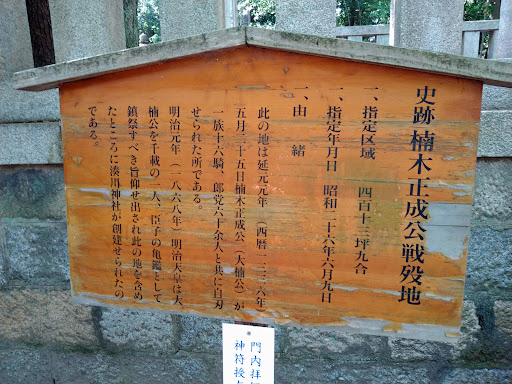 史跡 楠木正成公戦歿地
一、指定区域 四百十三坪九合
一、指定年月日 昭和二十六年六月九日
一、由緒
此の地は延元元年(西暦一三三六年
五月二十五日楠木正成公(大楠公)が
一族十六騎、郎党六十余人と共に自刃
せられた所である。
明治元年(一八六八年)明治天皇は大
楠公を千載の一人、臣子の亀鑑として
鎮祭すべき旨仰せ出され此の地を含め
たところに湊川神社が創建せられたの
である。
門内拝
神符授